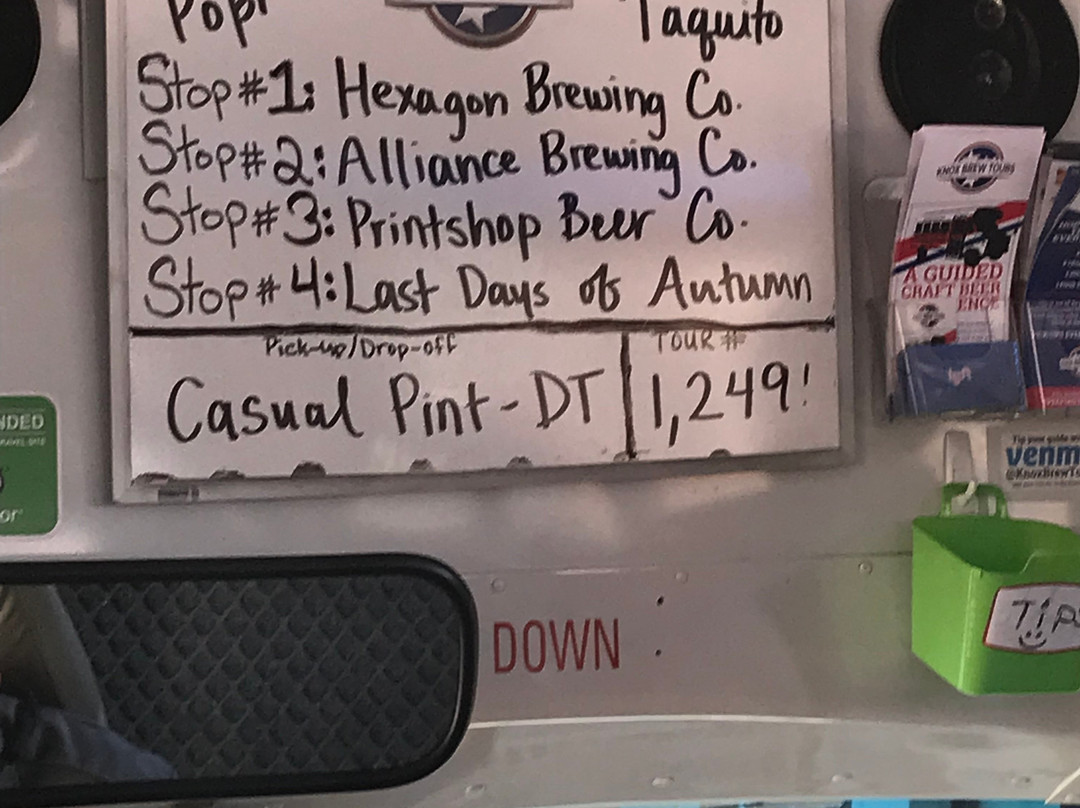 Popi Taquito
Stop #1: Hexagon Brewing Co.
Stop #2: Alliance Brewing Co.
Stop #3: Printshop Beer Co.
Stop #4: Last Days of Autumn
Pick-up/Drop-off TOUR #
Casual Pint - DT 1,249!
KNOX BREW TOURS
A GUIDED
CRAFT BEER
lyft
Tip your guide
venm
@KnoxBrewTo
NDED
or
DOWN
Tip